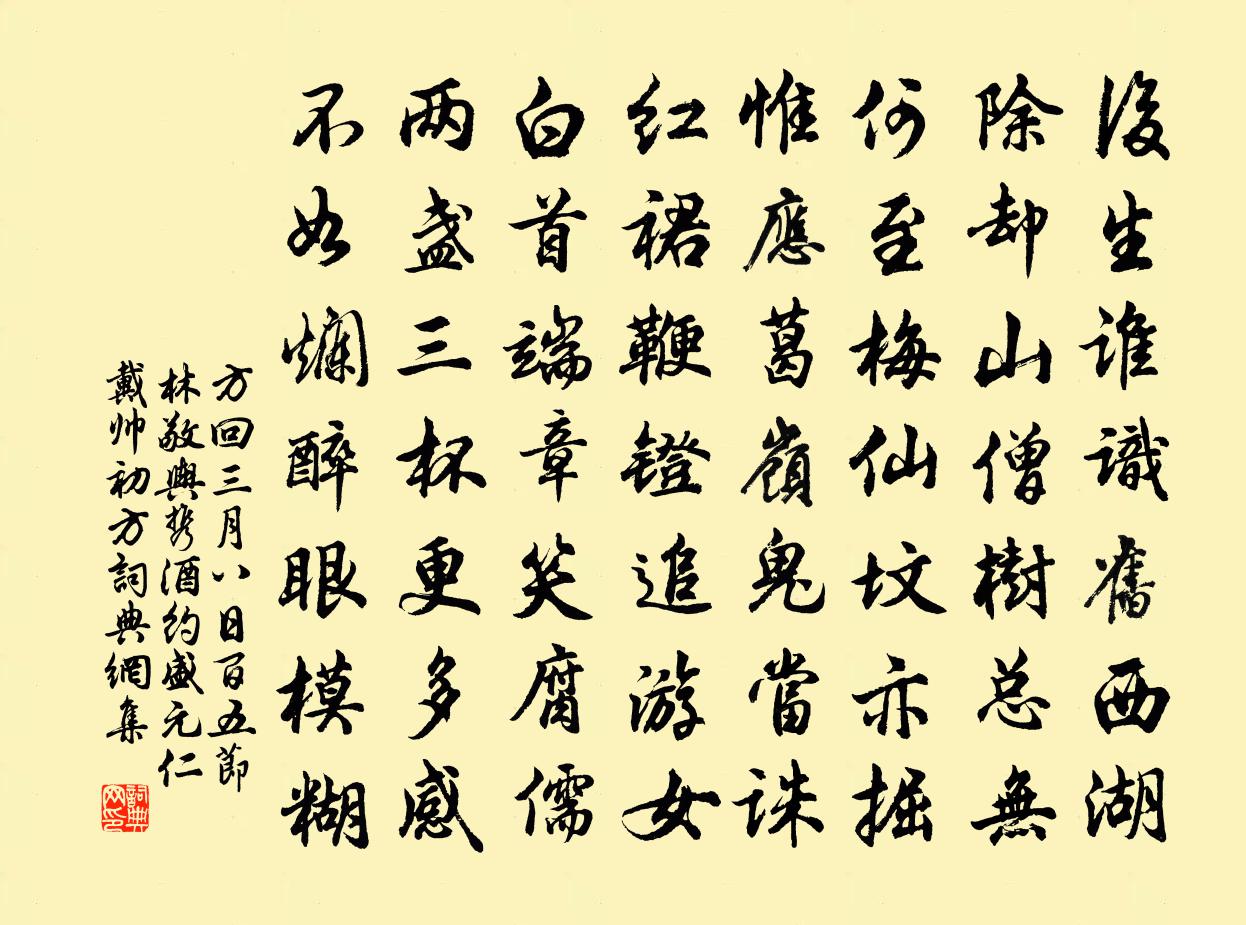 後生誰識舊西湖
除却山僧樹总無
何至梅仙坟亦掘
惟應葛嶺鬼當誅
红裙鞭鐙追游女
白首端章笑腐儒
两盏三杯更多感
不如爛醉眼模糊
方回三月八日百五節
林敬輿携酒约盛元仁
戴帅初方詞典網集
詞典网印